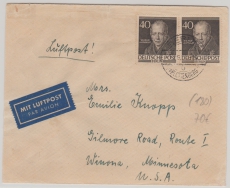 40 40
DEUTSCHE POST DEUTSCHE POST
Luftpost!
MIT LUFTPOST
PAR AVION
Mrs.
Emilie Knopps
Gilmore Road, Route 1
Winona, Minnesota
U.S.A.